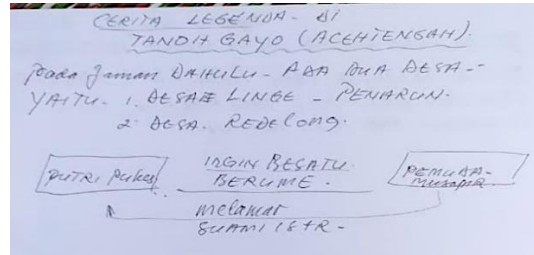 CERITA LEGENDA - di
TANOH GAYO (ACEH TENGAH).
pada Jaman DAHULU - ADA DUA DESA --
YAITU. 1. DESA LINGE - PENARUN.
2. DESA. REDELONG.
PUTRI Pukes
INGIN BESATU
BERUME.
PEMUDA -
melamar
SUAMI ISTR -